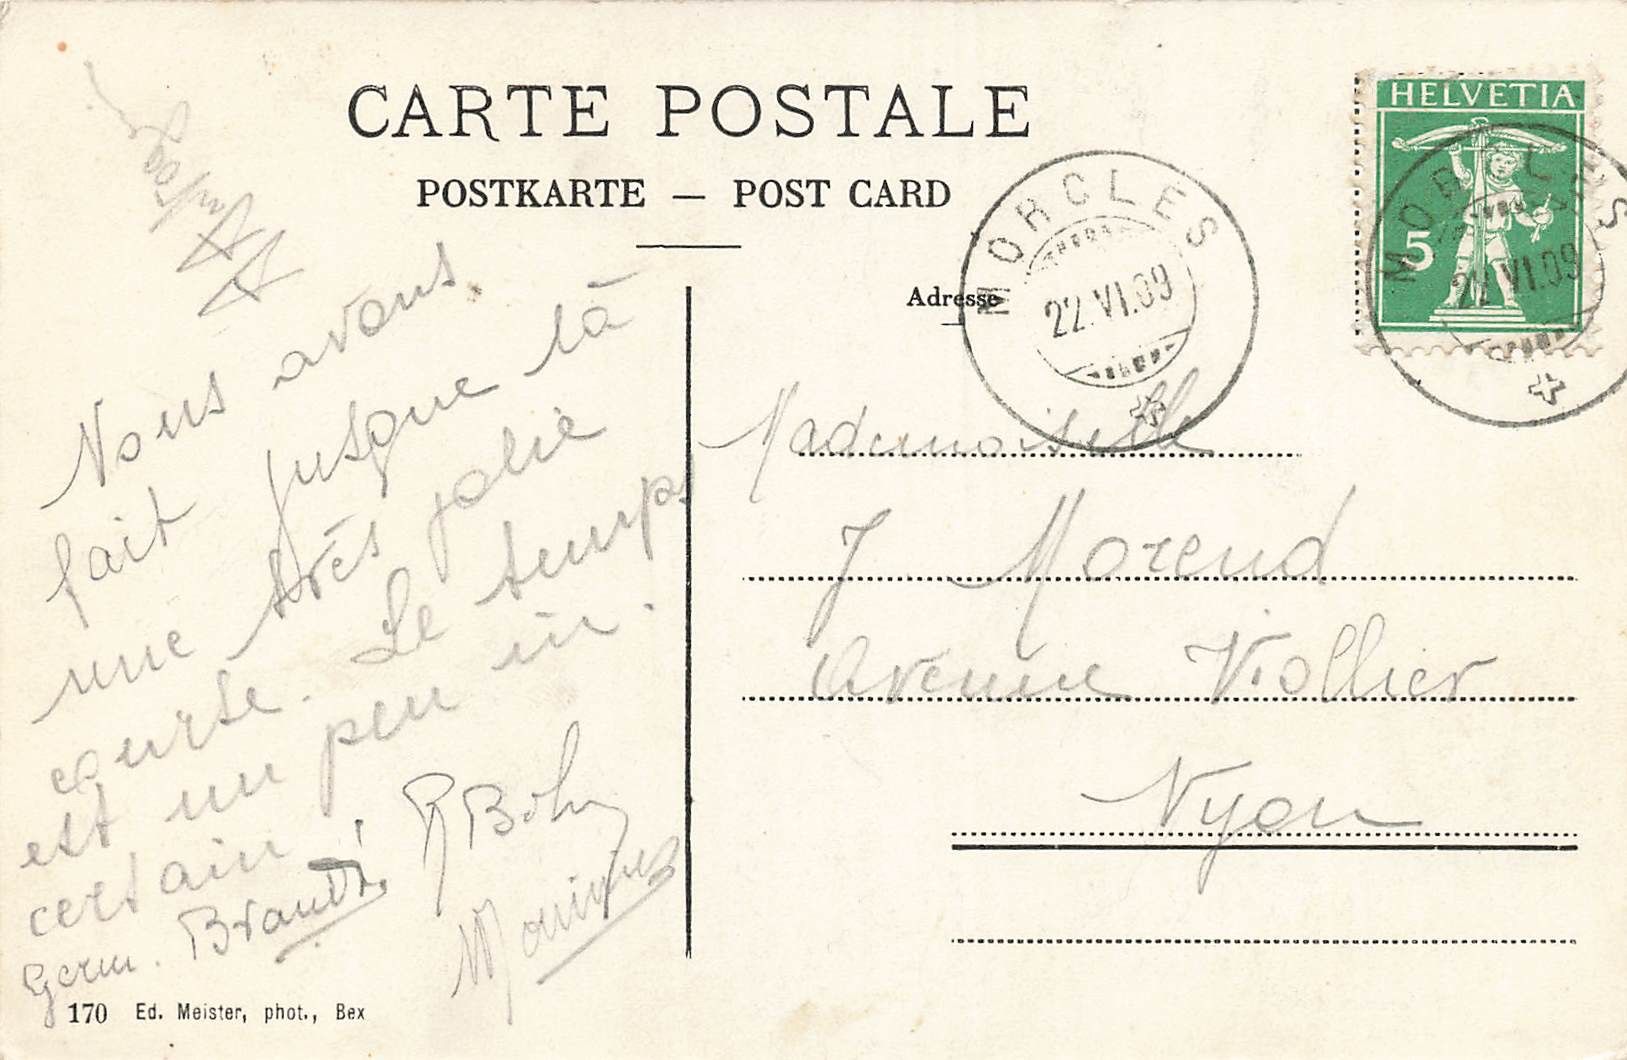 CARTE POSTALE
POSTKARTE — POST CARD
Adresse
HELVETIA
5
MORCLES
22.VI.09
MORCLES
22.VI.09
Nous avons
fait jusque là
une très jolie
course. Le temps
est un peu in
certain.
Germ.
R Bohy
Mademoiselle
J Morend
Avenue Viollier
Nyon
170 Ed. Meister, phot., Bex